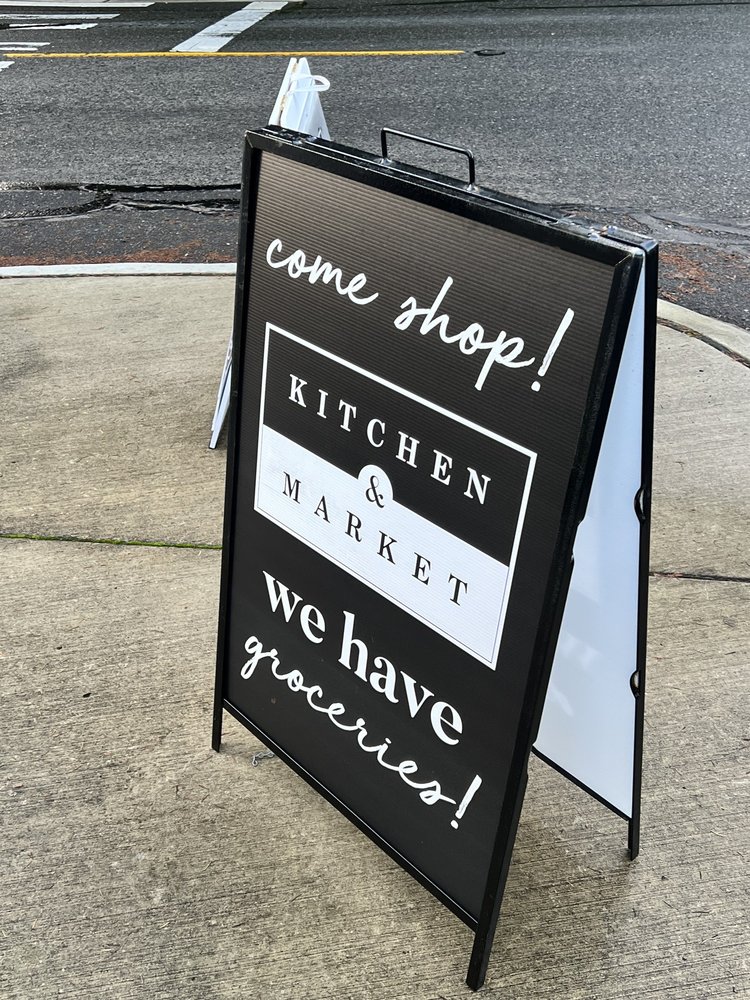 come shop!
KITCHEN
&
MARKET
we have
groceries!